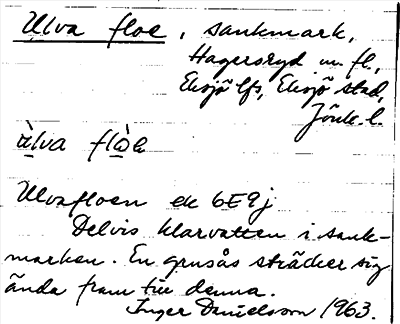 Ulva floe, sankmark,
Hagersryd m. fl.,
Eksjö lfs, Eksjö stad,
Jönk. l.
ùlva flò̱e
Ulvafloen ek 6E9j
Delvis klarvatten i sank-
marken. En grusås sträcker sig
ända fram till denna.
Inger Danielsson 1963.